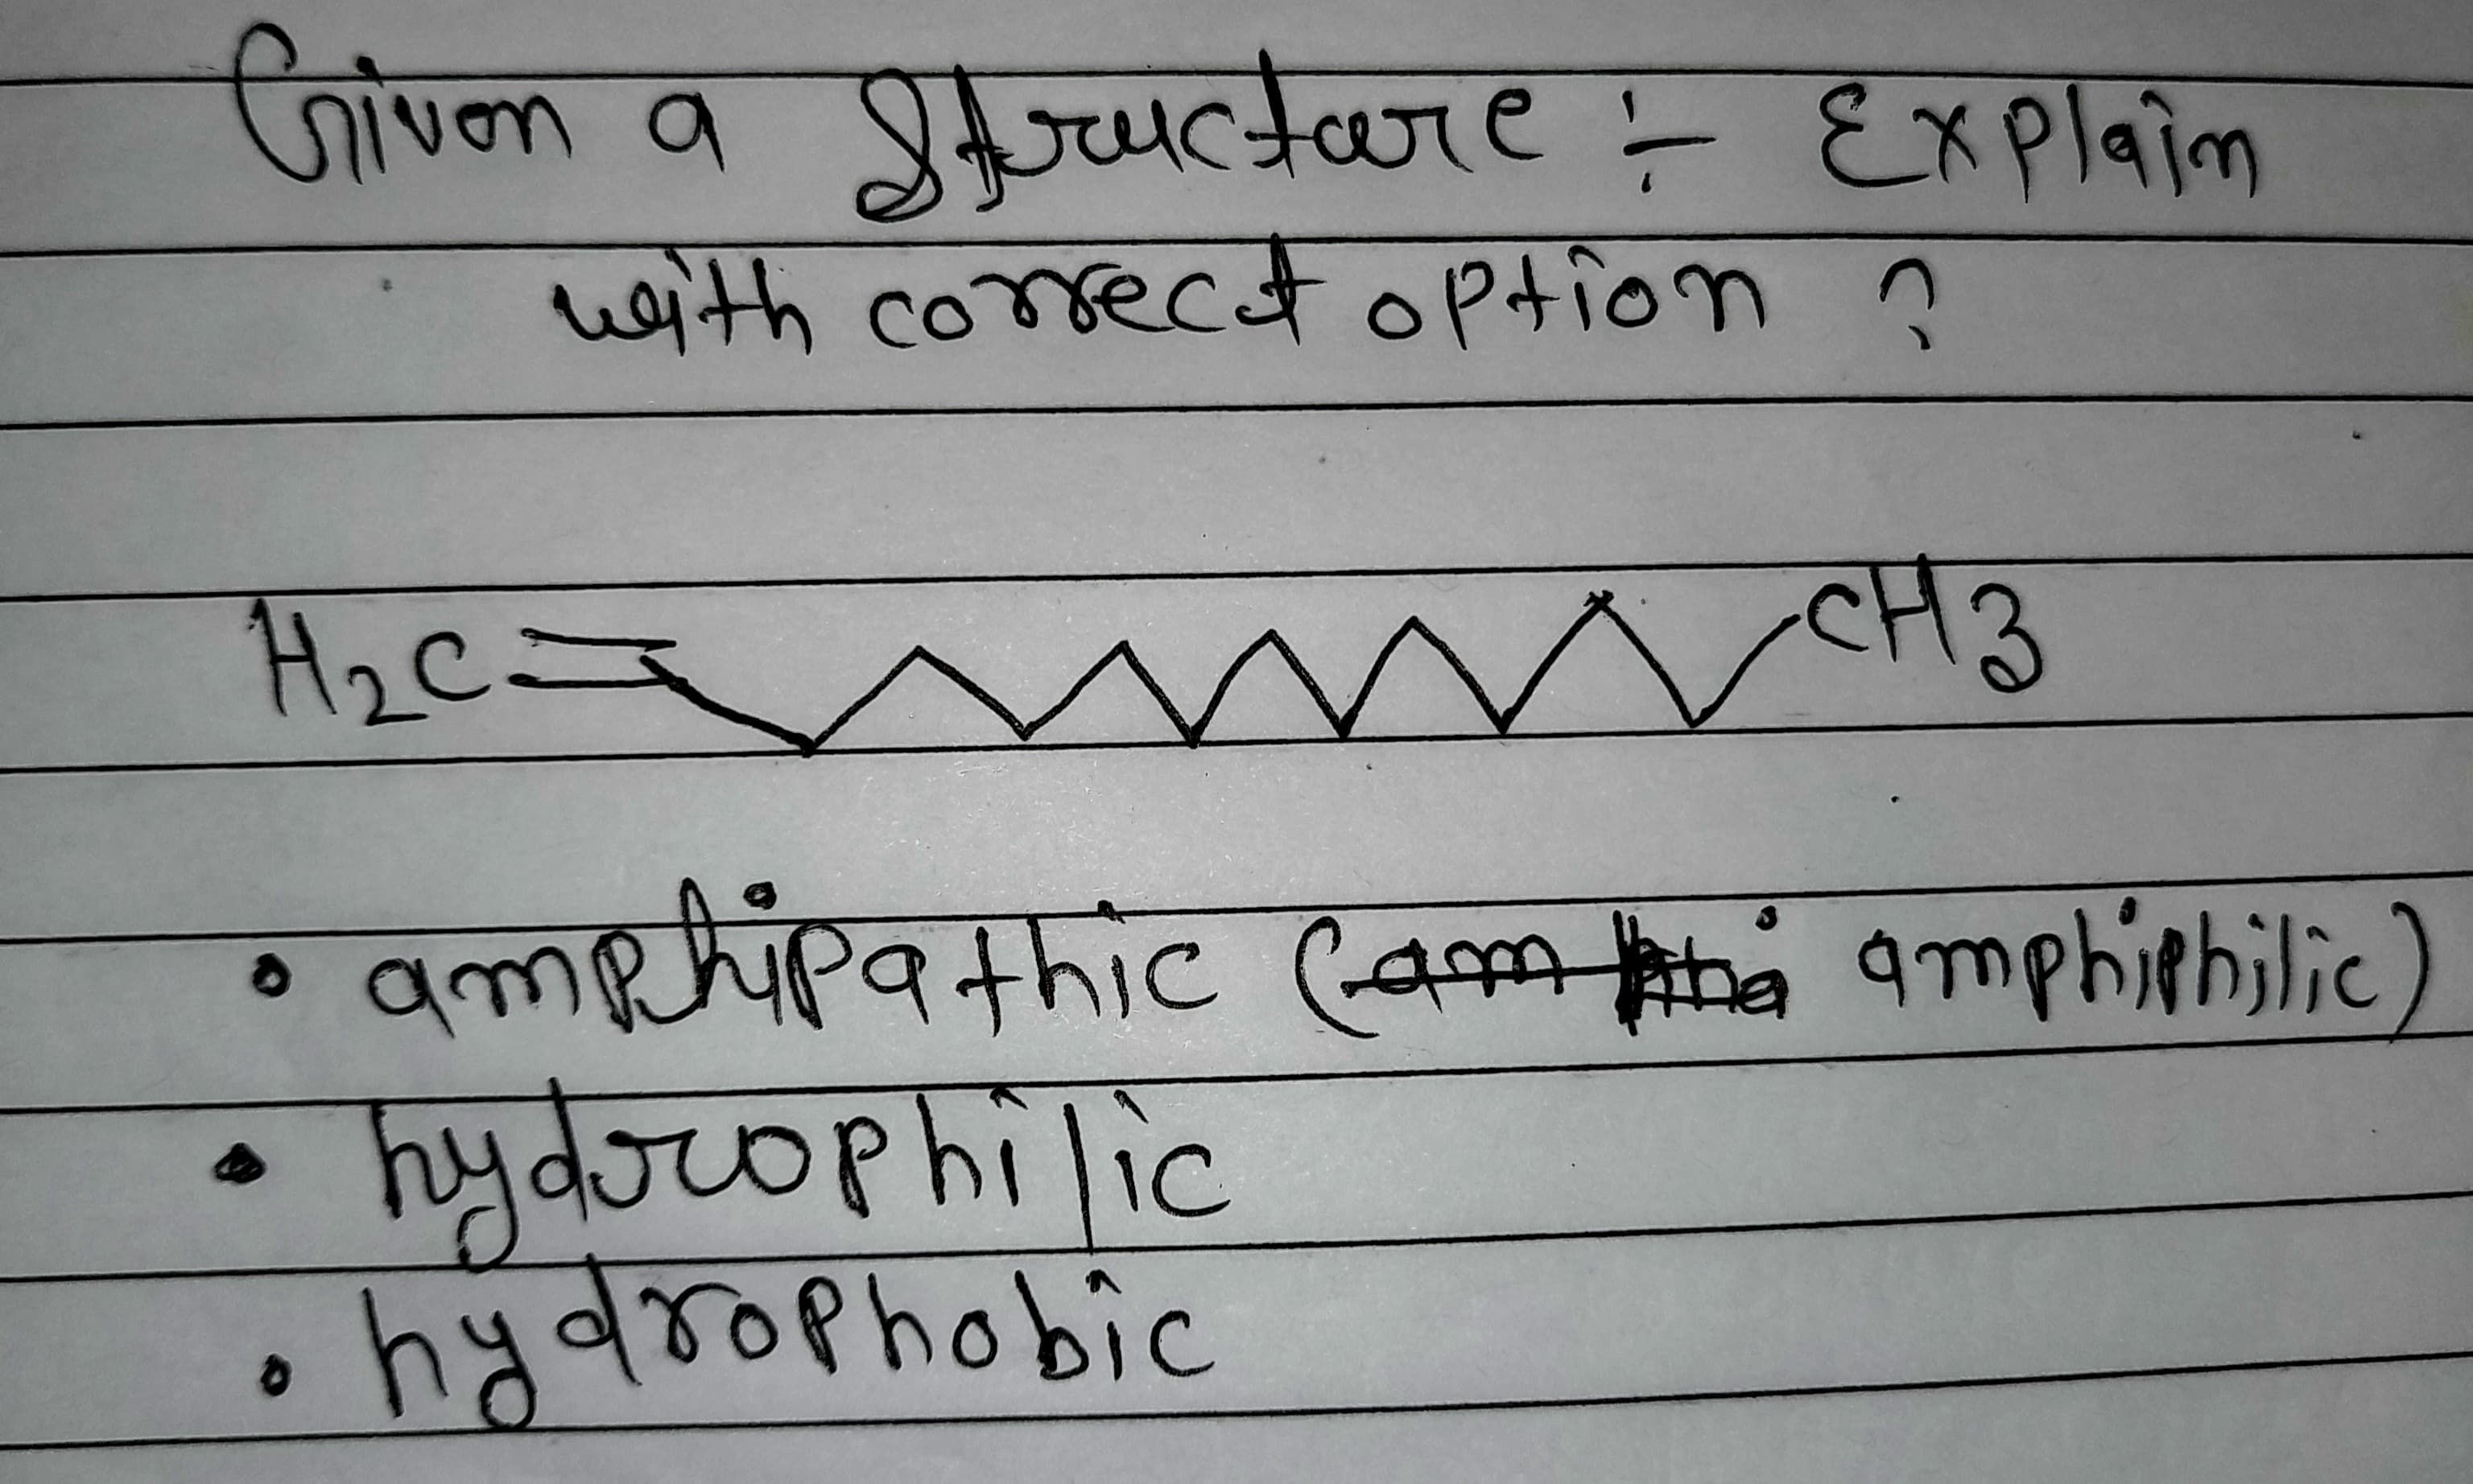 Given a Structure :- Explain
with correct option ?
H2C CH3
• amphipathic ( amphiphilic)
• hydrophilic
• hydrophobic